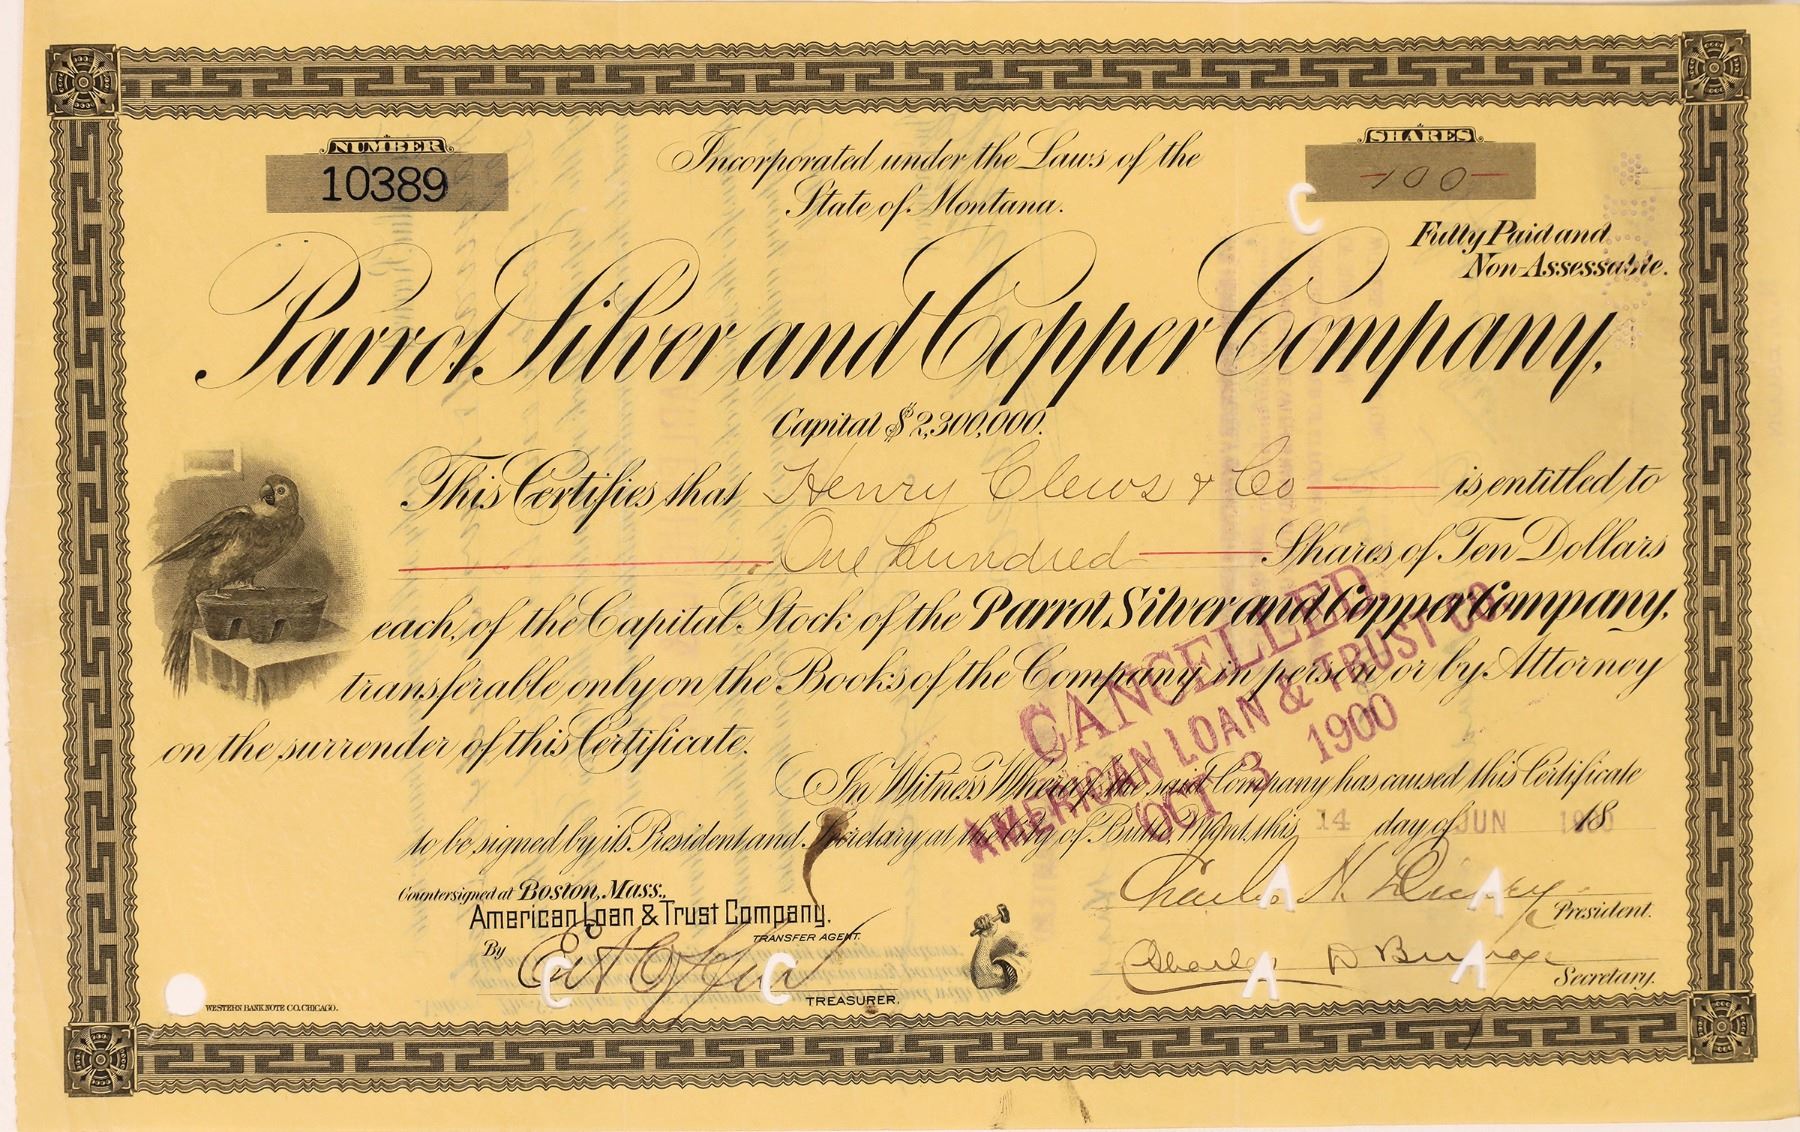 NUMBER
10389
Incorporated under the Laws of the
State of Montana.
SHARES
100
Fully Paid and
Non-Assessable.
Parrot Silver and Copper Company,
Capital $2,300,000.
This Certifies that Henry Clews & Co is entitled to
One hundred Shares of Ten Dollars
each, of the Capital Stock of the Parrot Silver and Copper Company,
transferable only on the Books of the Company, in person or by Attorney
on the surrender of this Certificate.
CANCELLED.
AMERICAN LOAN & TRUST CO.
OCT 3 1900
In Witness Whereof, the said Company has caused this Certificate
to be signed by its President and Secretary at the City of Butte, Mont, this 14 day of JUN 1900
Countersigned at Boston, Mass.,
American Loan & Trust Company.
TRANSFER AGENT.
By
TREASURER.
Charles
President.
Charles D
Secretary.
WESTERN BANK NOTE CO. CHICAGO.